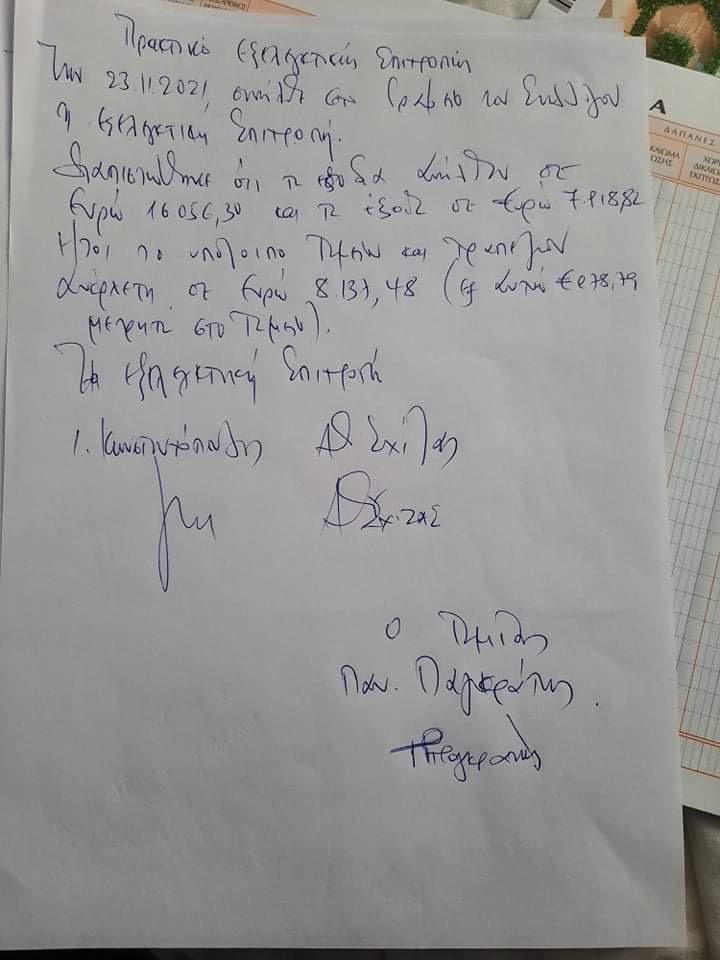 Πρακτικό εξελεγκτικής Επιτροπής
Την 23.11.2021, συνήλθε στο Γραφείο του Συλλόγου
η εξελεγκτική Επιτροπή.
Διαπιστώθηκε ότι τα έσοδα ανήλθαν σε
Ευρώ 16.056,30 και τα έξοδα σε Ευρώ 7.918,82
Ήτοι το υπόλοιπο Ταμείου και Τραπεζών
ανέρχετη σε Ευρώ 8.137,48 (εξ αυτών €
μετρητά στο Ταμείο).
Η εξελεγκτική Επιτροπή
1. Κωνσταντόπουλος Αθ Σχίζας
Αθ Σχίζας
Ο Ταμίας
Παν. Παγκράτης.
Παγκράτης
Α
ΔΑΠΑΝΕΣ
ΔΙΚΑΙΩΜΑ